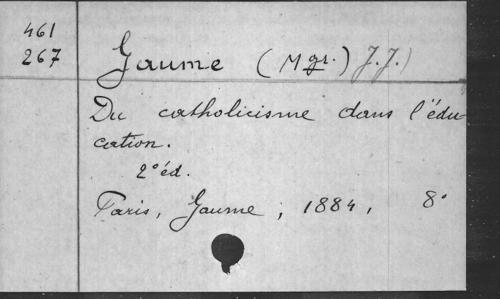 461
267
Gaume (Mgr.) J.J.)
Du catholicisme dans l'édu-
cation.
2°éd.
Paris, Gaume, 1884, 8°